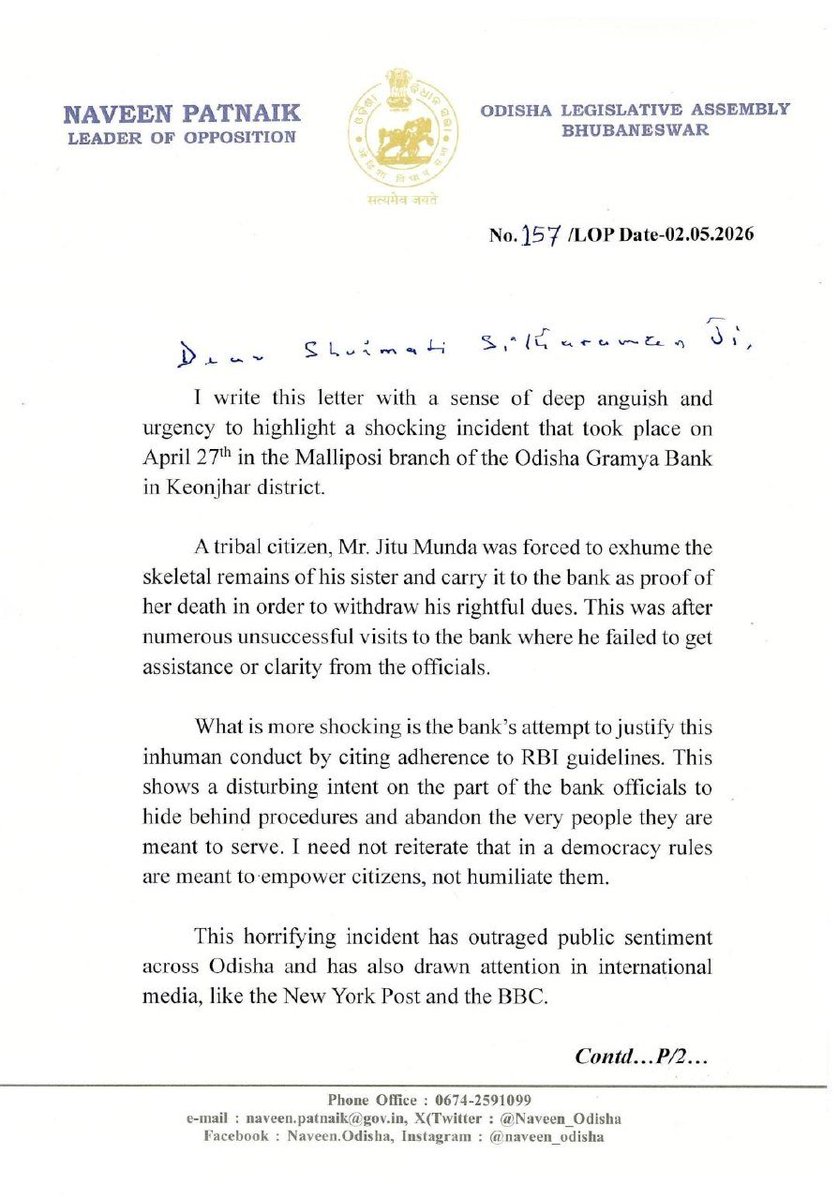 NAVEEN PATNAIK
LEADER OF OPPOSITION
सत्यमेव जयते
ODISHA LEGISLATIVE ASSEMBLY
BHUBANESWAR
No. 157 /LOP Date-02.05.2026
Dear Shrimati Sitharaman Ji,
I write this letter with a sense of deep anguish and
urgency to highlight a shocking incident that took place on
April 27th in the Malliposi branch of the Odisha Gramya Bank
in Keonjhar district.
A tribal citizen, Mr. Jitu Munda was forced to exhume the
skeletal remains of his sister and carry it to the bank as proof of
her death in order to withdraw his rightful dues. This was after
numerous unsuccessful visits to the bank where he failed to get
assistance or clarity from the officials.
What is more shocking is the bank's attempt to justify this
inhuman conduct by citing adherence to RBI guidelines. This
shows a disturbing intent on the part of the bank officials to
hide behind procedures and abandon the very people they are
meant to serve. I need not reiterate that in a democracy rules
are meant to empower citizens, not humiliate them.
This horrifying incident has outraged public sentiment
across Odisha and has also drawn attention in international
media, like the New York Post and the BBC.
Contd...P/2...
Phone Office : 0674-2591099
e-mail : naveen.patnaik@gov.in, X(Twitter : @Naveen_Odisha
Facebook : Naveen.Odisha, Instagram : @naveen_odisha